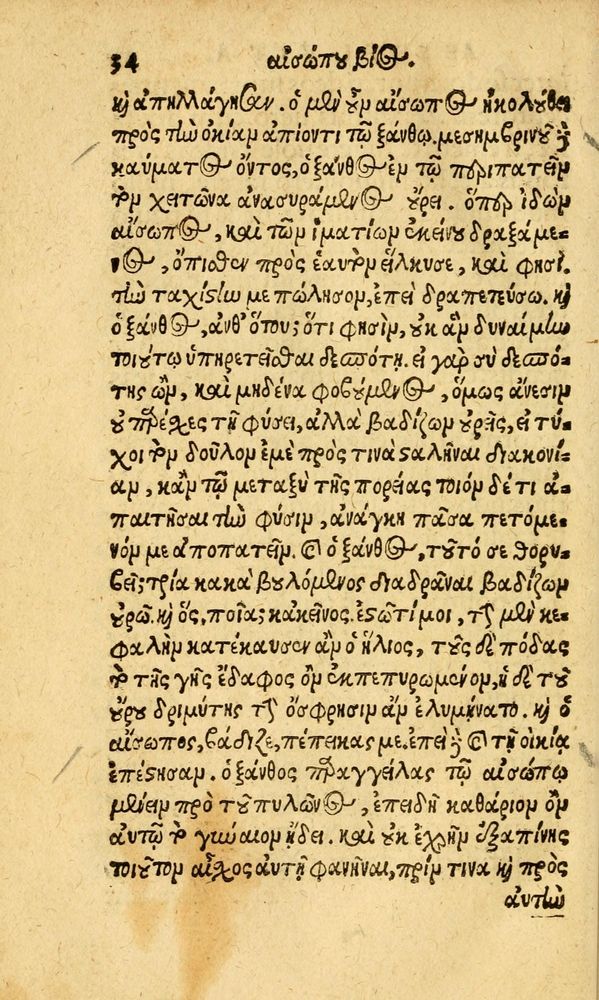 34 αἰσώπου βίος.
καὶ ἀπηλλάγησαν. ὁ μὲν οὖν αἴσωπος ἠκολούθει
πρὸς τὴν οἰκίαν ἀπιόντι τῷ ξάνθῳ. μεσημβρινοῦ δὲ
καύματος ὄντος, ὁ ξάνθος ἐν τῷ περιπατεῖν
τὸν χειτῶνα ἀνασυράμενος οὔρει. ὅπερ ἰδὼν
αἴσωπος, καὶ τῶν ἱματίων ἐκείνου δραξάμε-
νος, ὄπισθεν πρὸς ἑαυτὸν εἵλκυσε, καὶ φησί.
τὴν ταχίστην με πώλησον, ἐπεὶ δραπετεύσω. καὶ
ὁ ξάνθος, ἀνθ' ὅτου; ὅτι φησὶν, οὐκ ἂν δυναίμην
τοιούτῳ ὑπηρετεῖσθαι δεσπότῃ. εἰ γὰρ σὺ δεσπό-
της ὢν, καὶ μηδένα φοβούμενος, ὅμως ἄνεσιν
οὐ παρέχες τῇ φύσει, ἀλλὰ βαδίζων οὐρεῖς, εἰ τύ-
χοι τὸν δοῦλον ἐμὲ πρός τινα σταλῆναι διακονί-
αν, κἂν τῷ μεταξὺ τῆς πορείας τοιόνδέ τι ἀ-
παιτῆσαι τὴν φύσιν, ἀνάγκη πᾶσα πετόμε-
νόν με ἀποπατεῖν. καὶ ὁ ξάνθος, τοῦτό σε θορυ-
βεῖ; τρία κακὰ βουλόμενος διαδρᾶναι βαδίζων
οὐρῶ. καὶ ὃς, ποῖα; κἀκεῖνος. ἑστῶτί μοι, τὴν μὲν κε-
φαλὴν κατέκαυσεν ἂν ὁ ἥλιος, τοὺς δὲ πόδας
τὸ τῆς γῆς ἔδαφος ὂν ἐκπεπυρωμένον, ἡ δὲ τοῦ
οὔρου δριμύτης τὴν ὄσφρησιν ἂν ἐλυμήνατο. καὶ ὁ
αἴσωπος, βάδιζε, πέπεικας με. ἐπεὶ δὲ καὶ τῇ οἰκίᾳ
ἐπέστησαν. ὁ ξάνθος παραγγείλας τῷ αἰσώπῳ
μένειν πρὸ τοῦ πυλῶνος, ἐπειδὴ καθάριον ὂν
αὐτῷ τὸ γύναιον ᾔδει. καὶ οὐκ ἐχρῆν ἐξαπίνης
τοιοῦτον αἶσχος αὐτῇ φανῆναι, πρίν τινα καὶ πρὸς
αὐτὴν